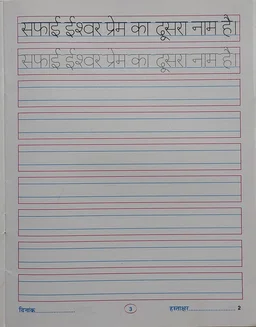 सफाई ईश्वर प्रेम का दूसरा नाम है।
सफाई ईश्वर प्रेम का दूसरा नाम है।
दिनांक 3 हस्ताक्षर 2